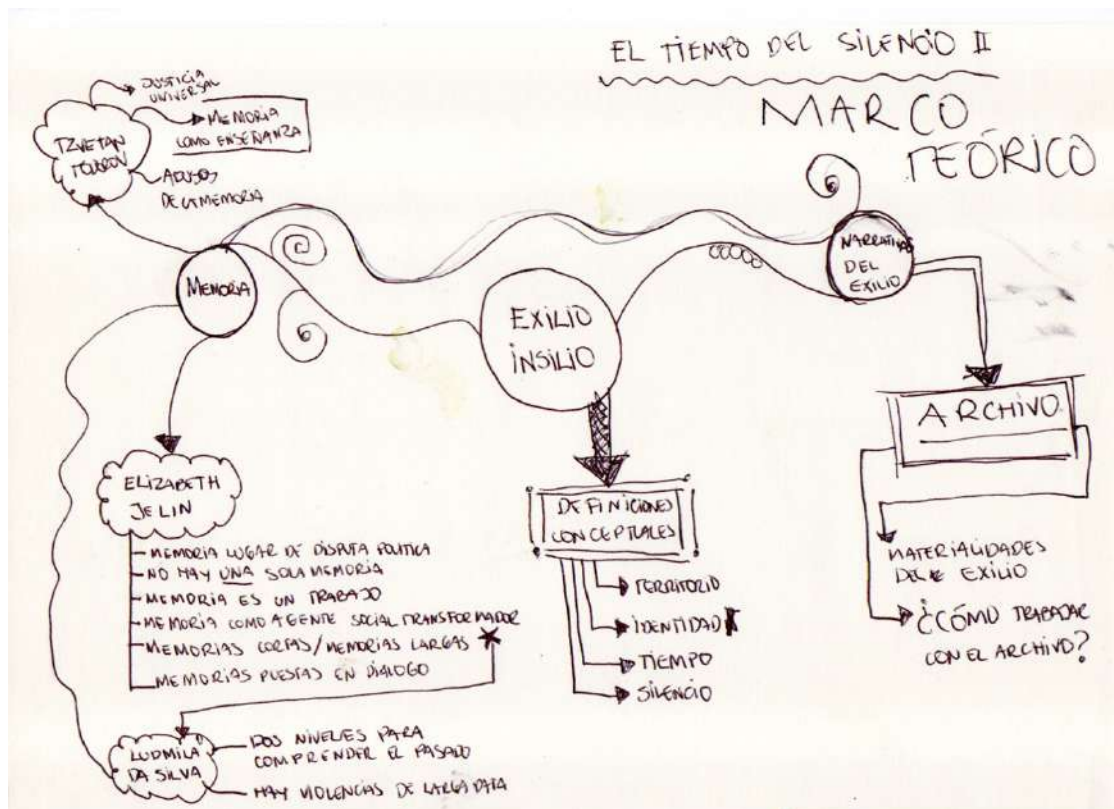 EL TIEMPO DEL SILENCIO II
MARCO
TEÓRICO
JUSTICIA
UNIVERSAL
MEMORIA
COMO ENSEÑANZA
TZVETAN
TODOROV
ABUSOS
DE LA MEMORIA
MEMORIA
EXILIO
INSILIO
NARRATIVAS
DEL
EXILIO
ELIZABETH
JELIN
MEMORIA LUGAR DE DISPUTA POLITICA
NO HAY UNA SOLA MEMORIA
MEMORIA ES UN TRABAJO
MEMORIA COMO AGENTE SOCIAL TRANSFORMADOR
MEMORIAS CORTAS/MEMORIAS LARGAS
MEMORIAS PUESTAS EN DIALOGO
LUDMILA
DA SILVA
DOS NIVELES PARA
COMPRENDER EL PASADO
HAY VIOLENCIAS DE LARGA DATA
DEFINICIONES
CONCEPTUALES
TERRITORIO
IDENTIDAD
TIEMPO
SILENCIO
ARCHIVO
MATERIALIDADES
DEL EXILIO
¿CÓMO TRABAJAR
CON EL ARCHIVO?